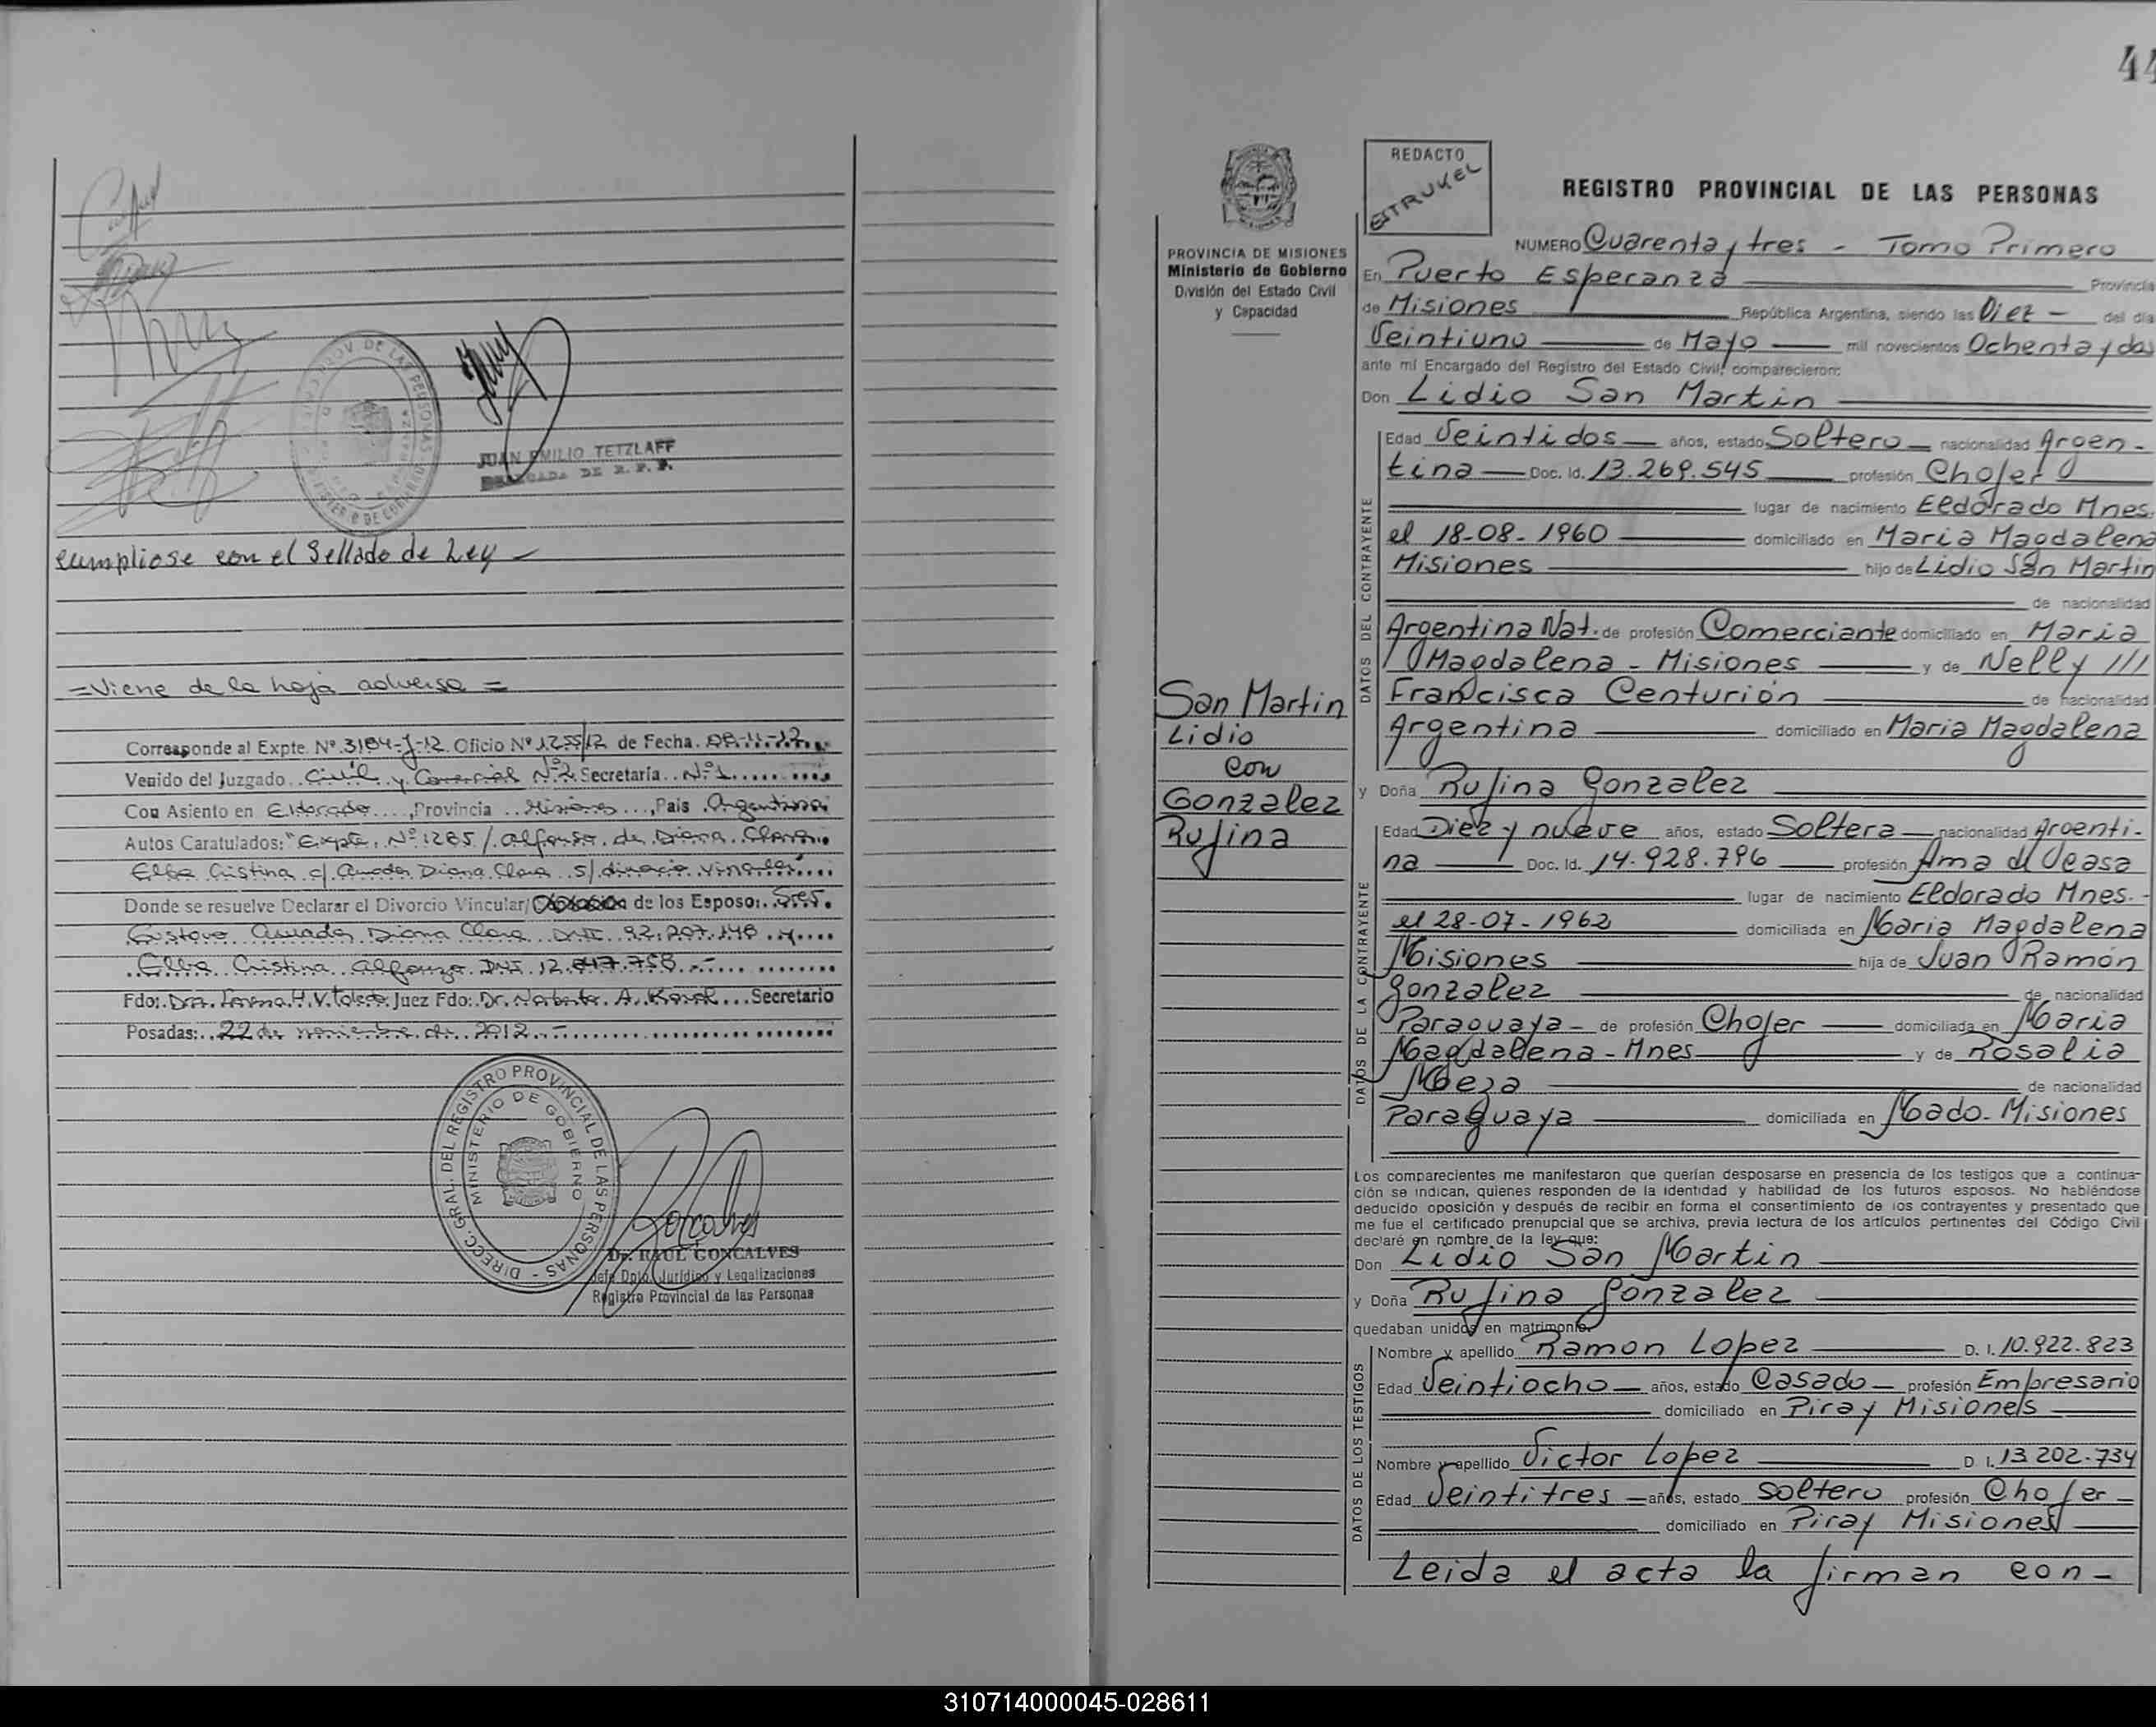 JUAN EMILIO TETZLAFF
cumpliose con el Sellado de Ley -
= Viene de la hoja adversa =
Corresponde al Expte. Nº 3184-J-12. Oficio Nº 1255/12 de Fecha. 08-11-12
Venido del Juzgado. Civil y Comercial Nº 2 Secretaría. Nº 1
Con Asiento en Eldorado, Provincia Misiones, País Argentina
Autos Caratulados: "Expte. Nº 1285/ Alfonso de Diana Clara
Elba Cristina c/ Diana Clara s/ divorcio vincular"
Donde se resuelve Declarar el Divorcio Vincular/ de los Esposo: Sres.
Gustavo Diana Clara DNI. 92.207.148 y
Elba Cristina DNI. 12.847.758.-
Fdo: Dra. H.V. Toledo. Juez Fdo: Dr. Norberto A. Secretario
Posadas: 22 de noviembre de 2012.-
DIRECC. GRAL. DEL REGISTRO PROVINCIAL DE LAS PERSONAS -
MINISTERIO DE GOBIERNO
Dr. RAUL GONCALVES
Jefe Dpto. Jurídico y Legalizaciones
Registro Provincial de las Personas
44
PROVINCIA DE MISIONES
Ministerio de Gobierno
División del Estado Civil
y Capacidad
San Martin
Lidio
con
Gonzalez
Rufina
REDACTO
REGISTRO PROVINCIAL DE LAS PERSONAS
NUMERO Cuarenta y tres - Tomo Primero
En Puerto Esperanza Provincia
de Misiones República Argentina, siendo las Diez - del día
Veintiuno de Mayo mil novecientos Ochenta y dos
ante mí Encargado del Registro del Estado Civil, comparecieron:
Don Lidio San Martin
DATOS DEL CONTRAYENTE
Edad Veintidos años, estado Soltero nacionalidad Argen-
tina Doc. Id. 13.269.545 profesión Chofer
lugar de nacimiento Eldorado Mnes.
el 18-08-1960 domiciliado en Maria Magdalena
Misiones hijo de Lidio San Martin
de nacionalidad
Argentina Nat. de profesión Comerciante domiciliado en Maria
Magdalena - Misiones y de Nelly ///
Francisca Centurión de nacionalidad
Argentina domiciliado en Maria Magdalena
y Doña Rufina Gonzalez
DATOS DE LA CONTRAYENTE
Edad Diez y nueve años, estado Soltera nacionalidad Argenti-
na Doc. Id. 14.928.796 profesión Ama d Veasa
lugar de nacimiento Eldorado Mnes.-
el 28-07-1962 domiciliada en Maria Magdalena
Misiones hija de Juan Ramón
Gonzalez de nacionalidad
Paraguaya - de profesión Chofer domiciliada en Maria
Magdalena - Mnes y de Rosalia
Meza de nacionalidad
Paraguaya domiciliada en Mado - Misiones
Los comparecientes me manifestaron que querían desposarse en presencia de los testigos que a continua-
ción se indican, quienes responden de la identidad y habilidad de los futuros esposos. No habiéndose
deducido oposición y después de recibir en forma el consentimiento de los contrayentes y presentado que
me fue el certificado prenupcial que se archiva, previa lectura de los artículos pertinentes del Código Civil
declaré en nombre de la ley que:
Don Lidio San Martin
y Doña Rufina Gonzalez
quedaban unidos en matrimonio.
DATOS DE LOS TESTIGOS
Nombre y apellido Ramon Lopez D. I. 10.922.823
Edad Veintiocho años, estado Casado - profesión Empresario
domiciliado en Piray Misiones
Nombre y apellido Victor Lopez D. I. 13.202.734
Edad Veintitres años, estado soltero profesión Chofer -
domiciliado en Piray Misiones
Leida el acta la firman con -
310714000045-028611